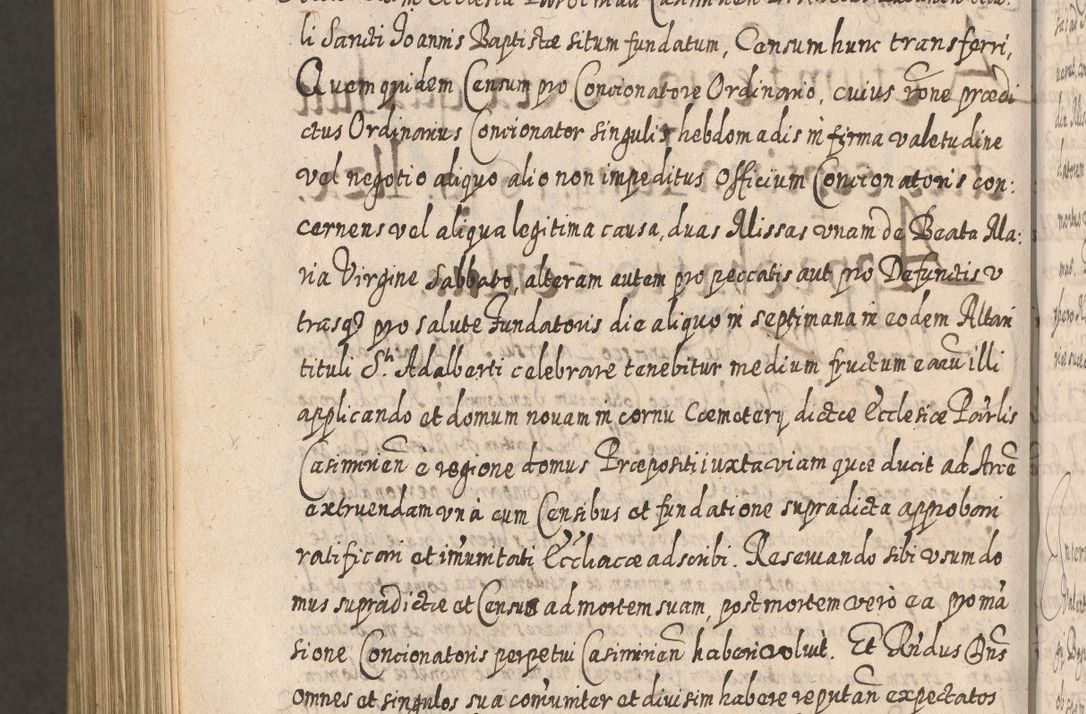 li Sancti Joannis Baptistæ situm fundatum, Censum hunc transferri,
Quem quidem Censum pro Concionatore Ordinario, cuius rõne prædi
ctus Ordinarius Concionator singulis hebdomadis infirma valetudine
vel negotio aliquo alio non impeditus Officium Concionatoris con:
cernens vel aliqua legitima causa, duas Missas unam de Beata Ma:
ria Virgine Sabbato, alteram autem pro peccatis aut pro Defunctis v
trasq3 pro salute Fundatoris die aliquo in septimana in eodem Altari
tituli S.ti Adalberti celebrare tenebitur medium fructum earũ illi
applicando et domum novam in cornu Cœmeterij dictæ Ecclesiæ Parlis
Casimirien̄ e regione domus Præpositi iuxta viam quæ ducit ad Arcẽ
extruendam una cum Censibus et fundatione supradicta approbari
ratificari et im̃unitati Eccliacæ adscribi. Reservando sibi usum do
mus supradictæ et Census ad mortem suam, post mortem verò ea pro mã
sione Concionatoris perpetui Casimirien̄ haberi voluit. Et Rñdus Dñs
omnes et singulos sua com̃uniter et divisim habere reputañ expectatos